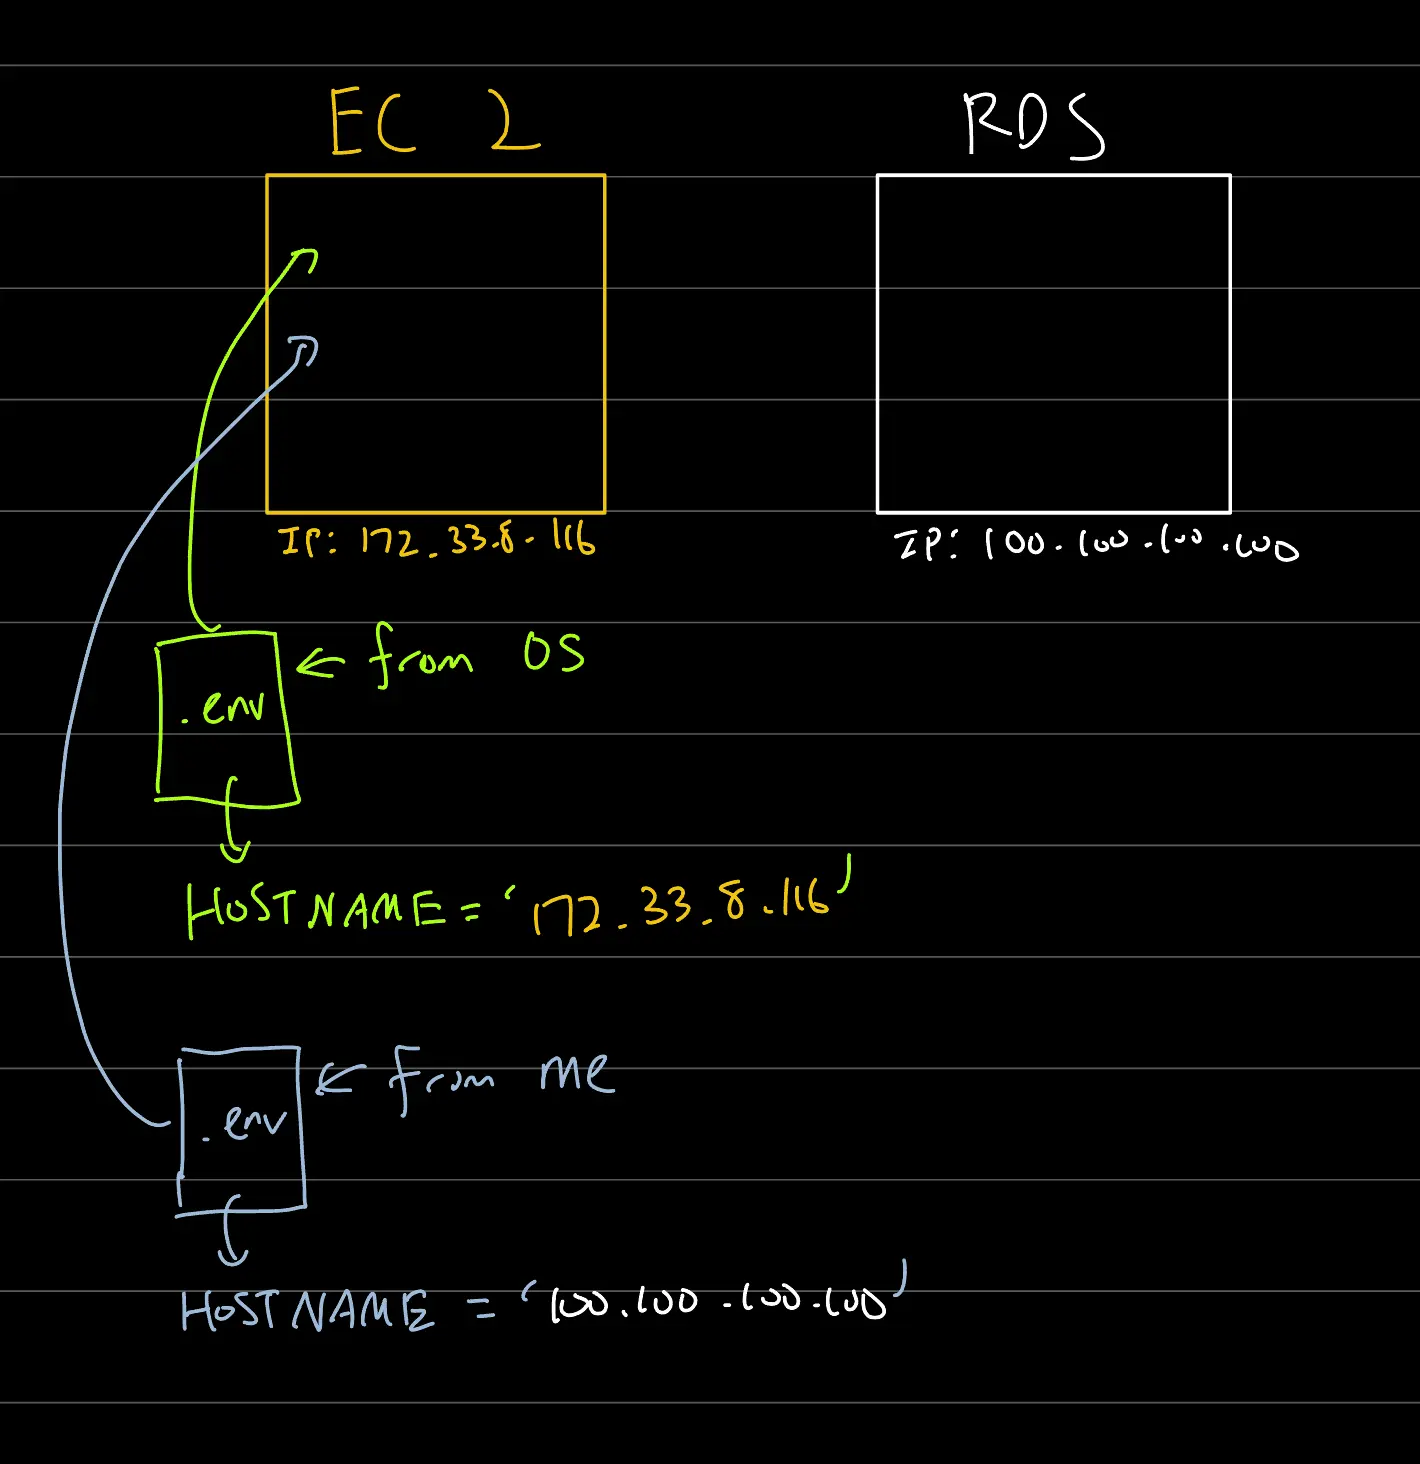 EC 2
RDS
IP: 172.33.8.116
IP: 100.100.100.100
from OS
.env
HOSTNAME = '172.33.8.116'
from me
.env
HOSTNAME = '100.100.100.100'